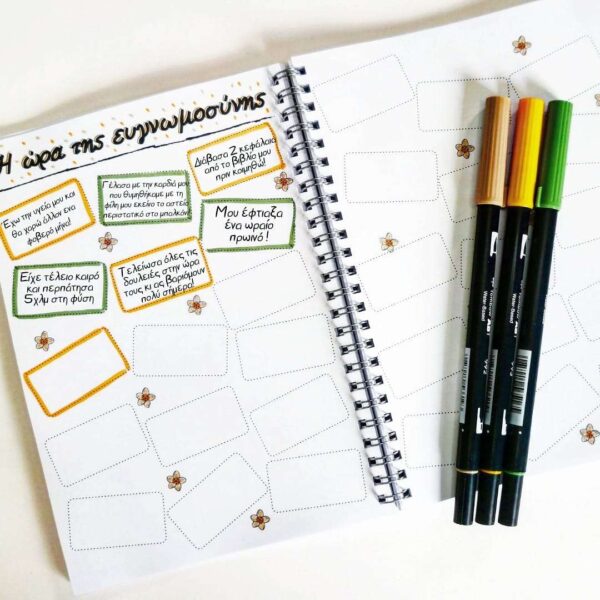 Η ώρα της ευγνωμοσύνης
Έχω την υγεία μου και
θα χαρώ άλλον ένα
φοβερό μήνα!
Γέλασα με την καρδιά μου
που θυμηθήκαμε με τη
φίλη μου εκείνο το αστείο
περιστατικό στο μπαλκόνι
Διάβασα 2 κεφάλαια
από το βιβλίο μου
πριν κοιμηθώ!
Είχε τέλειο καιρό
και περπάτησα
5χλμ στη φύση
Τελείωσα όλες τις
δουλειές στην ώρα
τους κι ας βαριόμουν
πολύ σήμερα!
Μου έφτιαξα
ένα ωραίο
πρωινό!